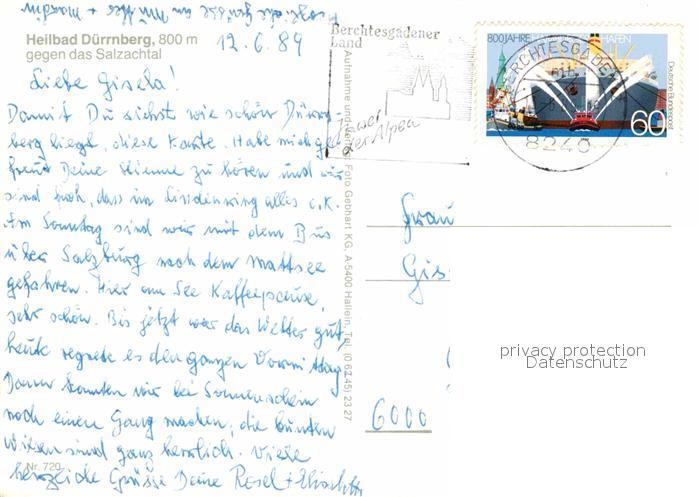 Herzliche Grüße an Mutter + Martin
Heilbad Dürrnberg, 800 m
gegen das Salzachtal
12.6.89
Liebe Gisela!
Damit Du siehst wie schön Dürrn-
berg liegt, diese Karte. Habe mich ge-
freut Deine Stimme zu hören und wir
sind froh, dass im Lindenring alles o.K.
Am Sonntag sind wir mit dem Bus
über Salzburg nach dem Mattsee
gefahren. Hier am See Kaffeepause,
sehr schön. Bis jetzt war das Wetter gut,
heute regnete es den ganzen Vormittag
Dann konnten wir bei Sonnenschein
noch einen Gang machen, die bunten
Wiesen sind ganz herrlich. Viele
herzliche Grüsse Deine Rosel +
Nr. 720
Aufnahme und Verlag: Foto Gebhart KG, A-5400 Hallein, Tel. (0 62 45) 23 27
Berchtesgadener
Land
der Alpen
800 JAHRE HAFEN
Deutsche Bundespost
60
BERCHTESGADEN
8240
Frau
Gis
6000
privacy protection
Datenschutz